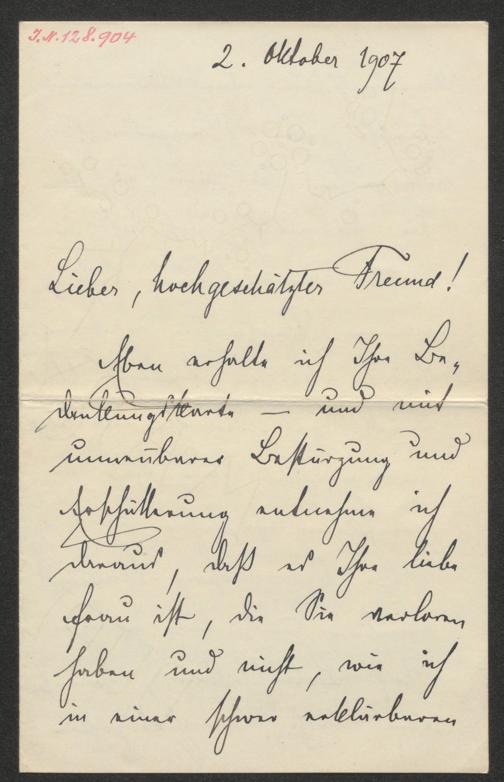 I.N.128.904
2. Oktober 1907
Lieber, hochgeschätzter Freund!
Eben erhalte ich Ihre Be-
dankungskarte — und mit
unnennbarer Bestürzung und
Erschütterung entnehme ich
daraus, daß es Ihre liebe
Frau ist, die Sie verloren
haben und nicht, wie ich
in einer schwer erklärbaren